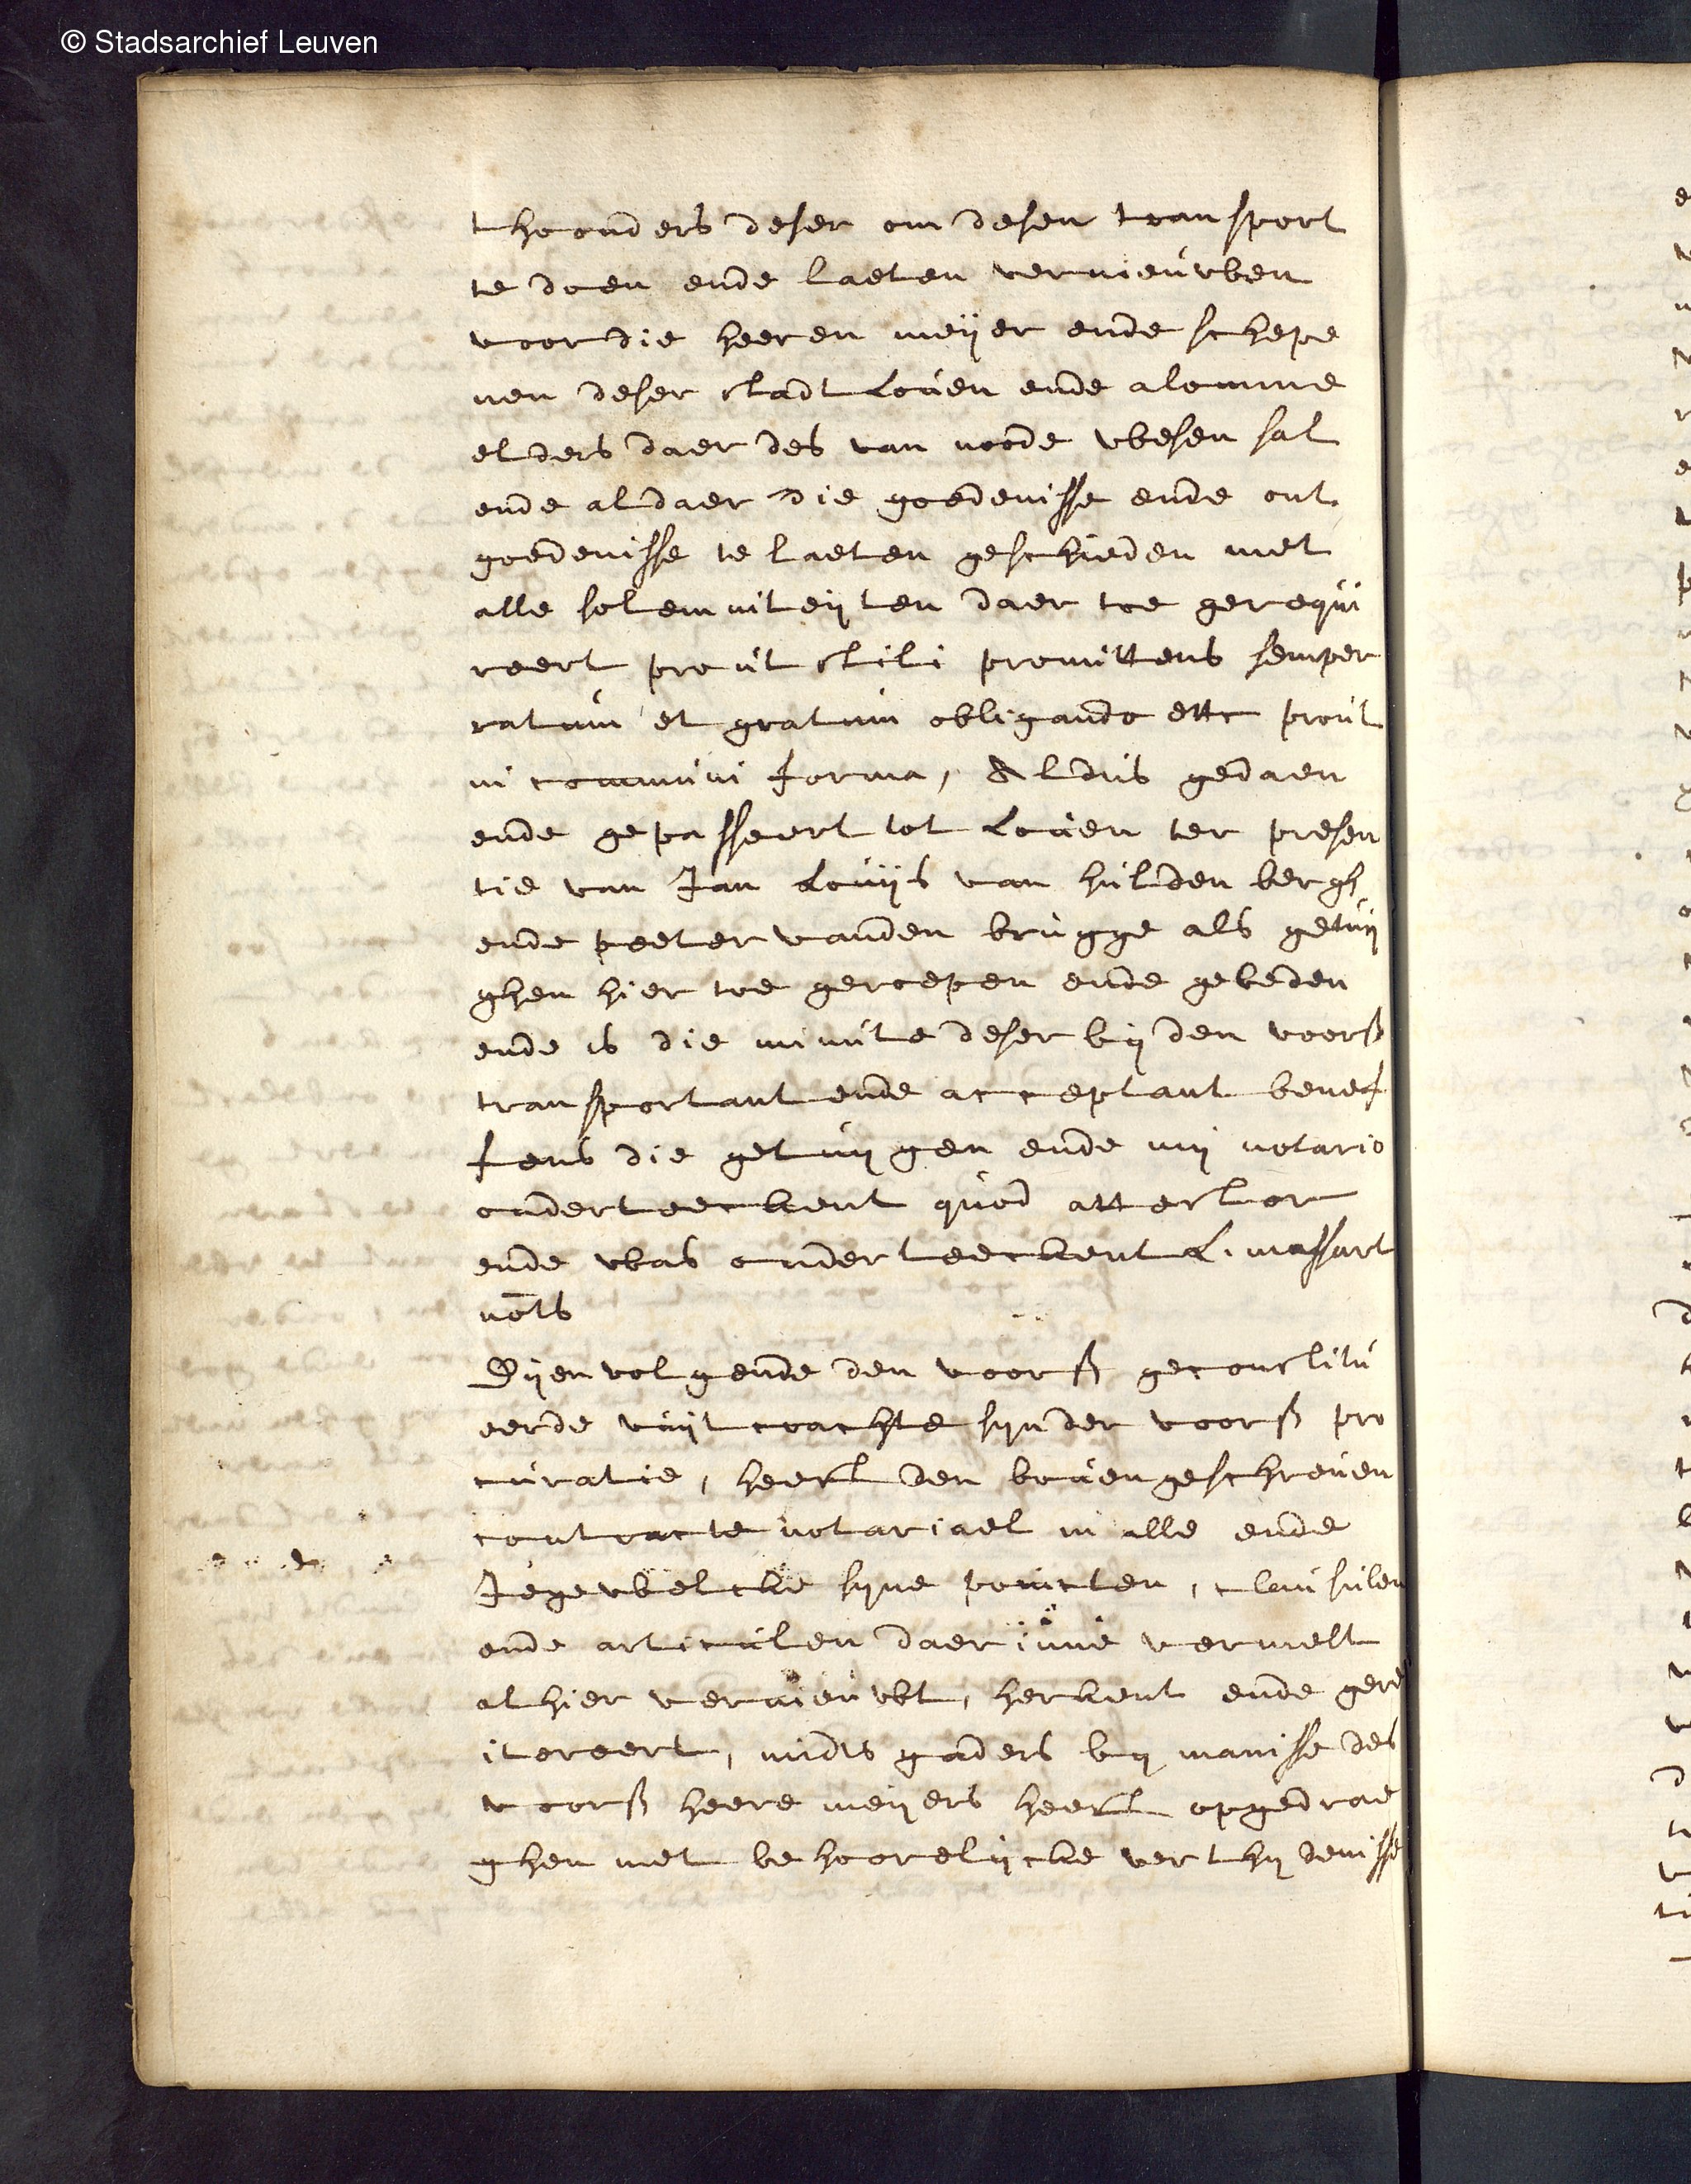 © Stadsarchief Leuven
thoonders deser om desen transport
te doen ende laeten vernieuwen
voor die heeren meijer ende schepe
nen deser stadt Loven ende alomme
elders daer des van noode wesen sal
ende aldaer die goedenisse ende ont
goedenisse te laeten geschieden met
alle solemniteijten daer toe gerequi
reert prout stili promittens semper
ratum et gratum obligando ettc prout
in communi forma, Aldus gedaen
ende gepasseert tot Loven ter presen
tie van Jan Louijs van huldenbergh
ende peeter vanden brugge als getuij
ghen hier toe geroepen ende gebeden
ende is die minute deser bij den voors
transportant ende acceptant benef
fens die getuijgen ende mij notario
onderteeckent quod attestor
ende was onderteeckent L. massart
nots
Dijen volgende den voors geconstitu
eerde vuijt crachte sijnder voors pro
curatie, heeft den bovengeschreven
contracte notariael in alle ende
Iegewelcke sijne poincten, clausulen
ende articulen daer inne vermelt
alhier vernieuwt, herkent ende gere
itereert, midts gaders bij manisse des
voors heere meijers heeft opgedrae
ghen met behoorelijcke verthijdenisse